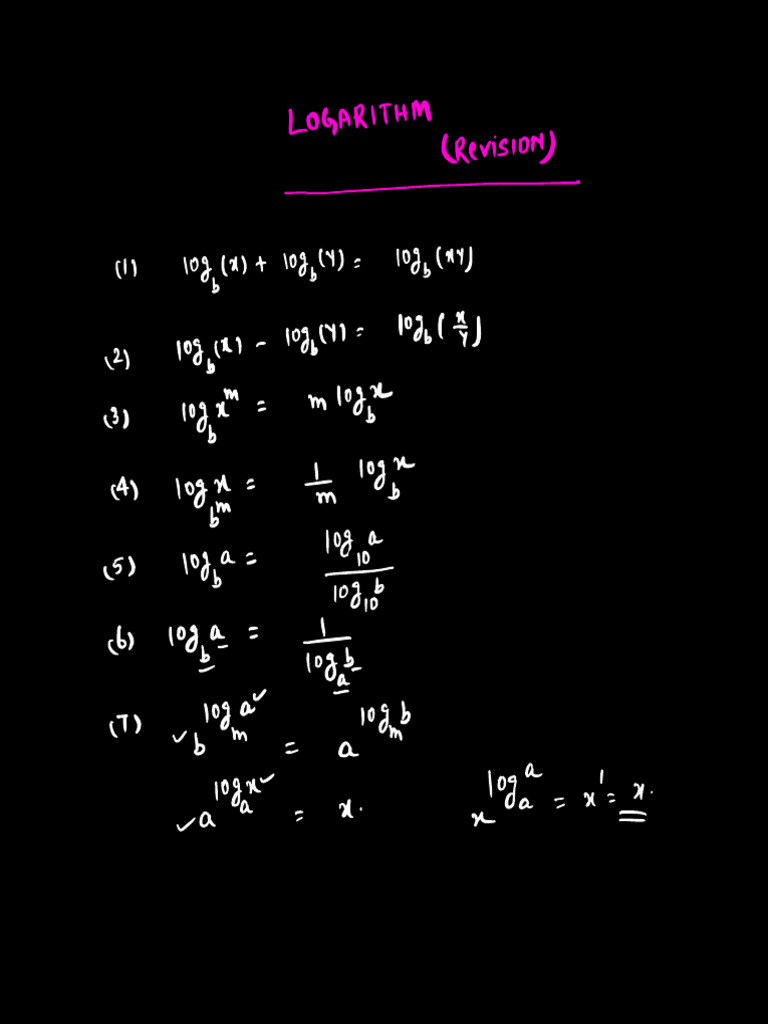 LOGARITHM
(REVISION)
(1) log_b(x) + log_b(Y) = log_b(xY)
(2) log_b(x) - log_b(Y) = log_b(x/Y)
(3) log_b x^m = m log_b x
(4) log_{b^m} x = 1/m log_b x
(5) log_b a = log_10 a / log_10 b
(6) log_b a = 1 / log_a b
(7) ✓b^{log_m a ✓} = a^{log_m b}
✓a^{log_a x ✓} = x. x^{log_a a} = x^1 = x.